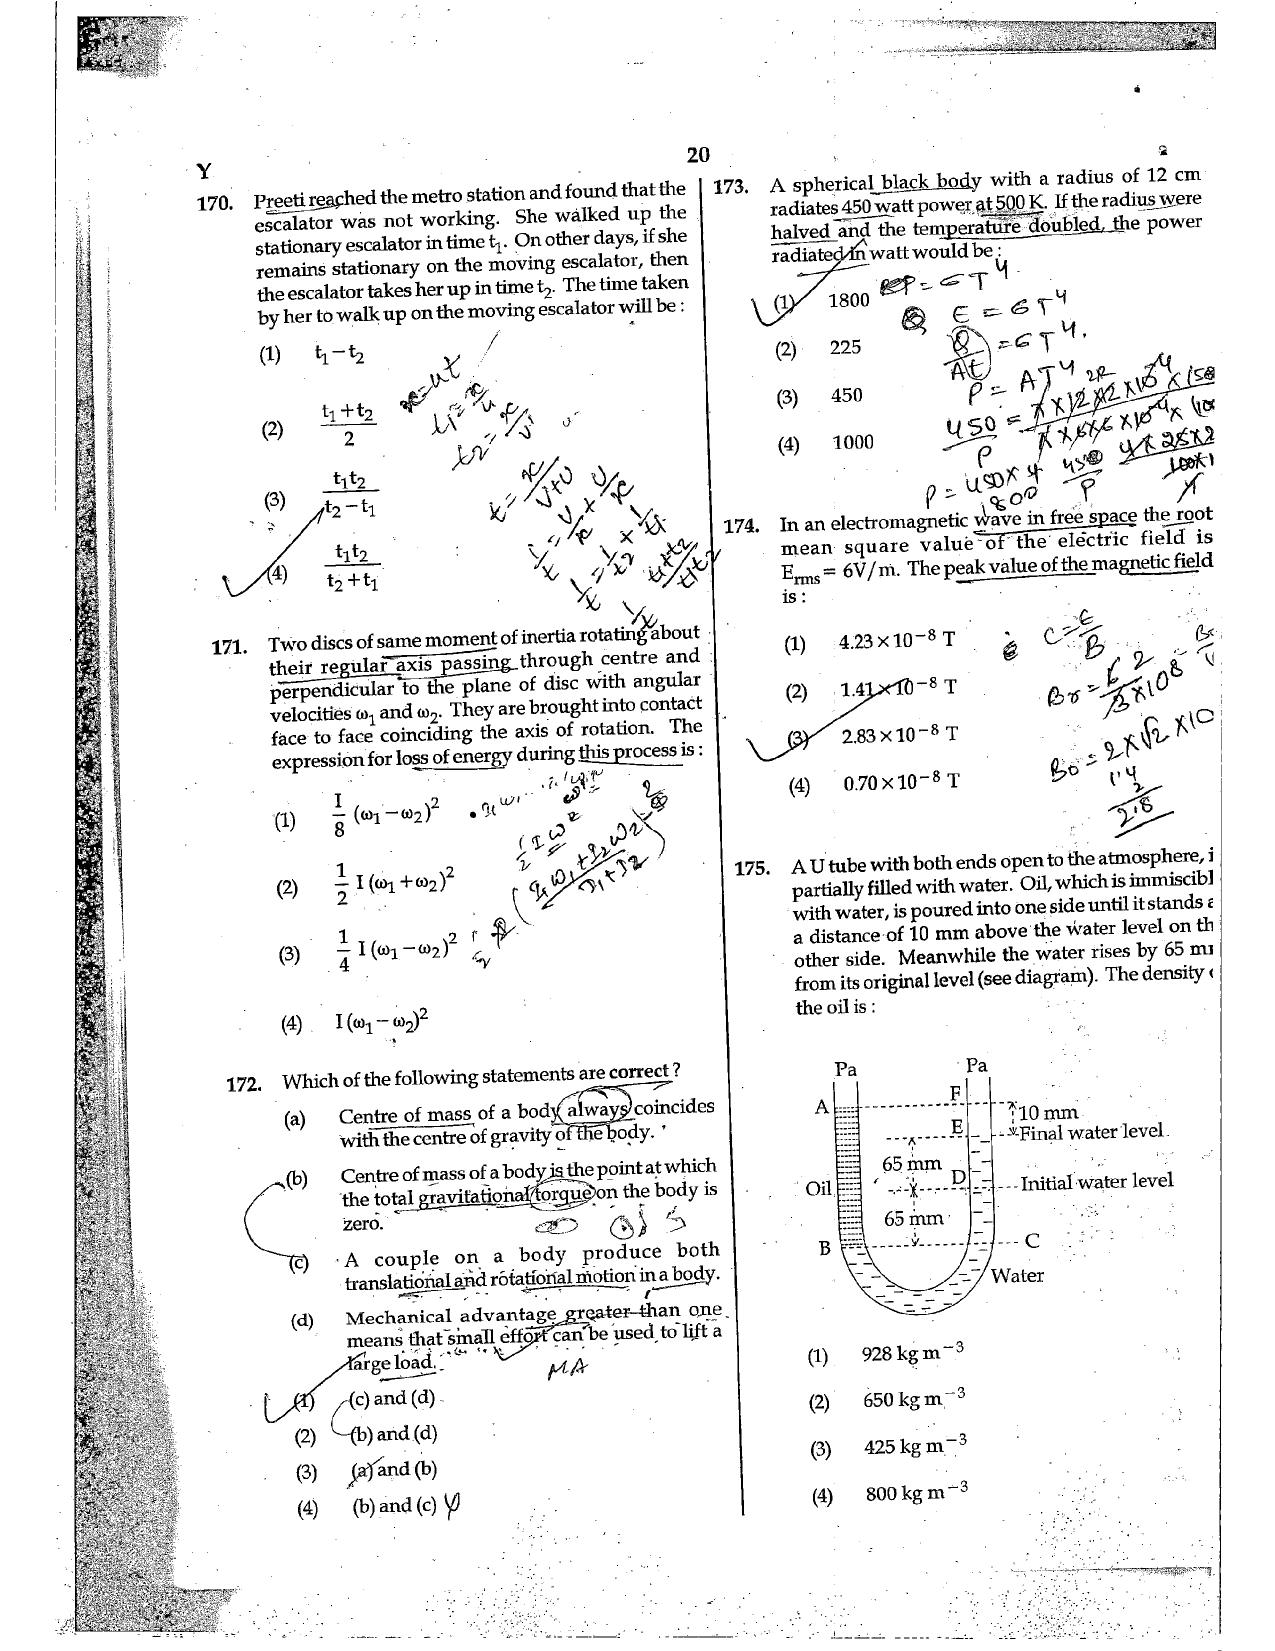 20
Y
170. Preeti reached the metro station and found that the
escalator was not working. She walked up the
stationary escalator in time t₁. On other days, if she
remains stationary on the moving escalator, then
the escalator takes her up in time t₂. The time taken
by her to walk up on the moving escalator will be :
(1) t₁ − t₂
(2) (t₁ + t₂)/2
(3) t₁t₂/(t₂ − t₁)
(4) t₁t₂/(t₂ + t₁)
x = ut
171. Two discs of same moment of inertia rotating about
their regular axis passing through centre and
perpendicular to the plane of disc with angular
velocities ω₁ and ω₂. They are brought into contact
face to face coinciding the axis of rotation. The
expression for loss of energy during this process is :
(1) I/8 (ω₁ − ω₂)²
(2) 1/2 I (ω₁ + ω₂)²
(3) 1/4 I (ω₁ − ω₂)²
(4) I (ω₁ − ω₂)²
172. Which of the following statements are correct ?
(a) Centre of mass of a body always coincides
with the centre of gravity of the body.
(b) Centre of mass of a body is the point at which
the total gravitational torque on the body is
zero.
(c) A couple on a body produce both
translational and rotational motion in a body.
(d) Mechanical advantage greater than one
means that small effort can be used to lift a
large load.
MA
(1) (c) and (d)
(2) (b) and (d)
(3) (a) and (b)
(4) (b) and (c)
173. A spherical black body with a radius of 12 cm
radiates 450 watt power at 500 K. If the radius were
halved and the temperature doubled, the power
radiated in watt would be :
(1) 1800
(2) 225
(3) 450
(4) 1000
E = σT⁴
P = AT⁴
174. In an electromagnetic wave in free space the root
mean square value of the electric field is
Erms = 6V/m. The peak value of the magnetic field
is :
(1) 4.23 × 10⁻⁸ T
(2) 1.41 × 10⁻⁸ T
(3) 2.83 × 10⁻⁸ T
(4) 0.70 × 10⁻⁸ T
C = E/B
2.8
175. A U tube with both ends open to the atmosphere, i
partially filled with water. Oil, which is immiscibl
with water, is poured into one side until it stands a
a distance of 10 mm above the water level on th
other side. Meanwhile the water rises by 65 m
from its original level (see diagram). The density
the oil is :
Pa Pa
A F 10 mm
E Final water level
65 mm
Oil D Initial water level
65 mm
B C
Water
(1) 928 kg m⁻³
(2) 650 kg m⁻³
(3) 425 kg m⁻³
(4) 800 kg m⁻³